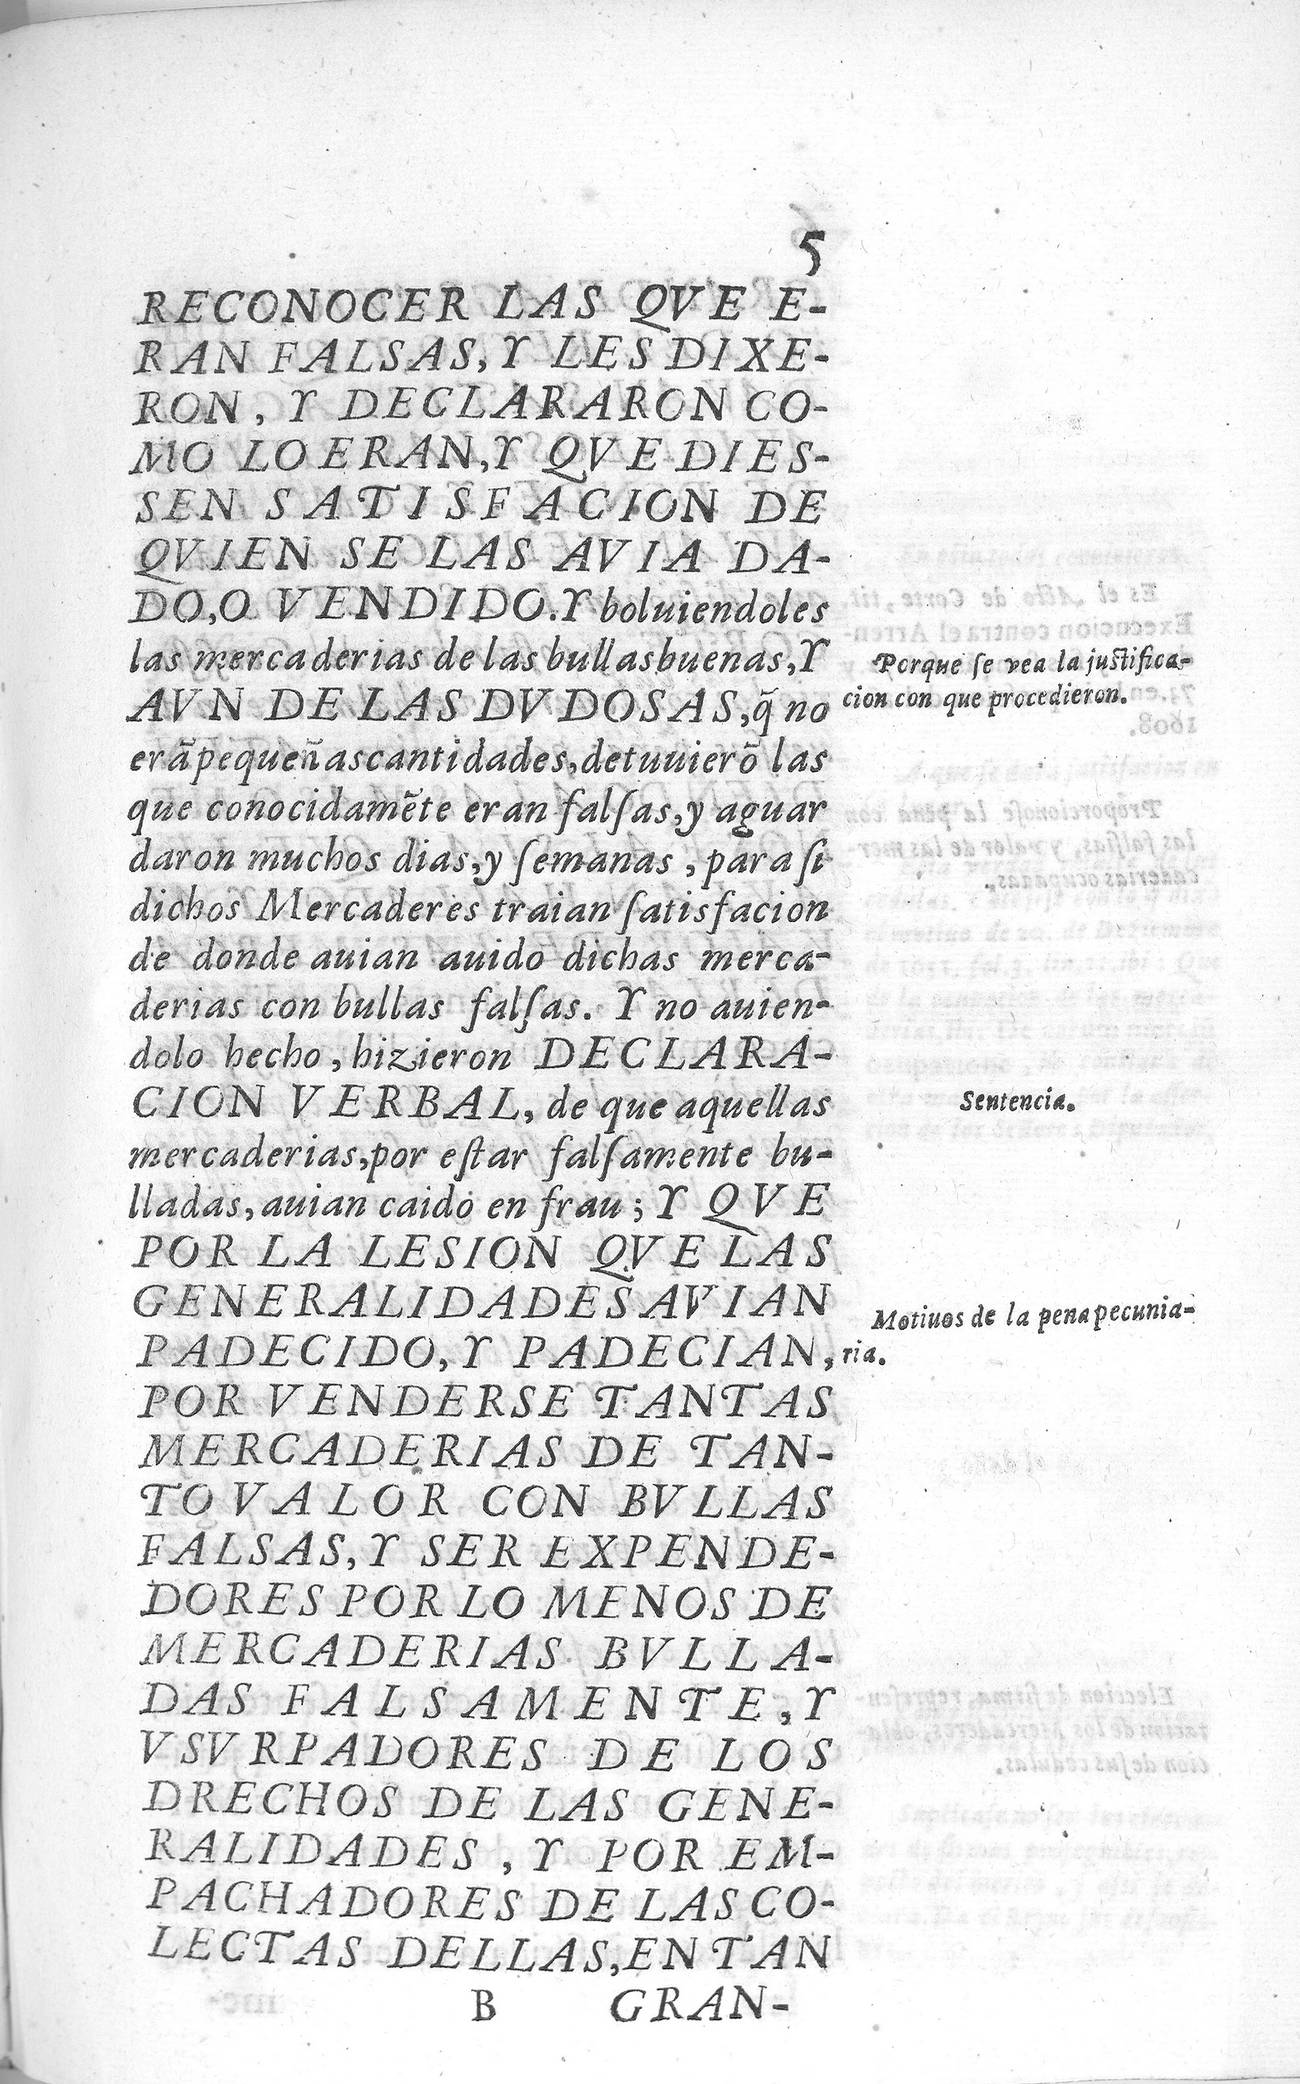 5
RECONOCER LAS QVE E-
RAN FALSAS, Y LES DIXE-
RON, Y DECLARARON CO-
MO LO ERAN, Y QVE DIES-
SEN SATISFACION DE
QVIEN SE LAS AVIA DA-
DO, O VENDIDO. Y boluiendoles
las mercaderias de las bullas buenas, Y
AVN DE LAS DVDOSAS, q̃ no
erã pequeñas cantidades, detuuierõ las
que conocidamẽte eran falſas, y aguar
daron muchos dias, y ſemanas, para ſi
dichos Mercaderes traian ſatisfacion
de donde auian auido dichas merca-
derias con bullas falſas. Y no auien-
dolo hecho, hizieron DECLARA-
CION VERBAL, de que aquellas
mercaderias, por eſtar falſamente bu-
lladas, auian caido en frau; Y QVE
POR LA LESION QVE LAS
GENERALIDADES AVIAN
PADECIDO, Y PADECIAN,
POR VENDERSE TANTAS
MERCADERIAS DE TAN-
TO VALOR CON BVLLAS
FALSAS, Y SER EXPENDE-
DORES POR LO MENOS DE
MERCADERIAS BVLLA-
DAS FALSAMENTE, Y
VSVRPADORES DE LOS
DRECHOS DE LAS GENE-
RALIDADES, Y POR EM-
PACHADORES DE LAS CO-
LECTAS DELLAS, EN TAN
B GRAN-
Porque ſe vea la juſtifica-
cion con que procedieron.
Sentencia.
Motiuos de la pena pecunia-
ria.